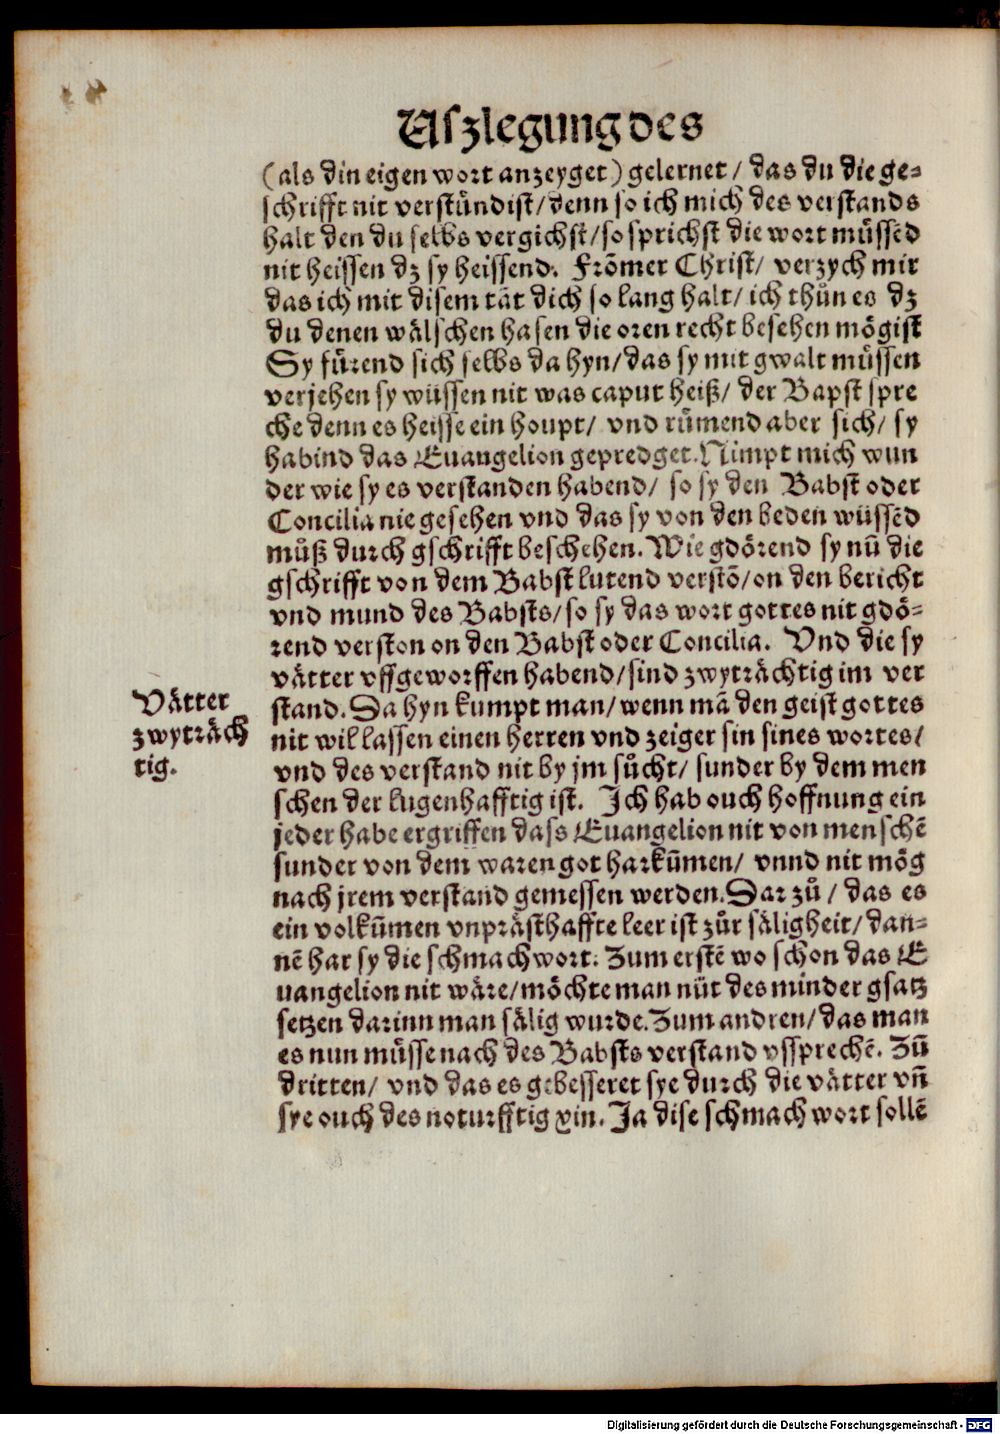 Uszlegung des
(als din eigen wort anzeyget) gelernet / das du die ge⸗
schrifft nit verstündist/denn so ich mich des verstands
halt den du selbs vergichst/so sprichst die wort müssēd
nit heissen dz sy heissend. Frõmer Christ/ verzych mir
das ich mit disem tãt dich so lang halt/ ich thůn es dz
du denen wälschen hasen die oren recht besehen mögist
Sy fürend sich selbs da hyn/das sy mit gwalt müssen
verjehen sy wüssen nit was caput heiß/ der Bapst spre
che denn es heisse ein houpt/ vnd růmend aber sich/ sy
habind das Euangelion gepredget. Nimpt mich wun
der wie sy es verstanden habend/ so sy den Babst oder
Concilia nie gesehen vnd das sy von den beden wüssēd
můß durch gschrifft beschehen. Wie gdörend sy nū die
gschrifft von dem Babst lutend verstõ/on den bericht
vnd mund des Babsts/so sy das wort gottes nit gdö⸗
rend verston on den Babst oder Concilia. Vnd die sy
vätter vffgeworffen habend/sind zwyträchtig im ver
Vätter
zwyträch
tig.
stand. Da hyn kumpt man/wenn mã den geist gottes
nit wil lassen einen herren vnd zeiger sin sines wortes/
vnd des verstand nit by jm sůcht/ sunder by dem men
schen der lugenhafftig ist. Ich hab ouch hoffnung ein
jeder habe ergriffen dass Euangelion nit von menschē
sunder von dem waren got harkūmen/ vnnd nit mög
nach jrem verstand gemessen werden. Dar zů / das es
ein volkūmen vnprästhaffte leer ist zůr säligheit/ dan⸗
nē har sy die schmachwort. Zum erstē wo schon das E
uangelion nit wäre/möchte man nüt des minder gsatz
setzen darinn man sälig wurde. Zum andren/das man
es nun müsse nach des Babsts verstand vssprechē. Zū
dritten/ vnd das es gebesseret sye durch die vätter vñ
sye ouch des noturfftig xin. Ja dise schmachwort sollē
Digitalisierung gefördert durch die Deutsche Forschungsgemeinschaft - DFG